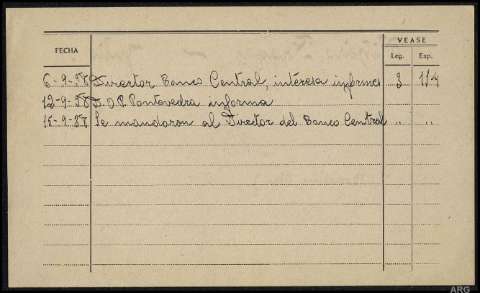 VEASE
FECHA Leg. Exp.
6-9-57 Director Banco Central, interesa informes 3 1/4
12-9-57 Pontevedra informa
16-9-57 Se mandaron al Director del Banco Central " "
ARG